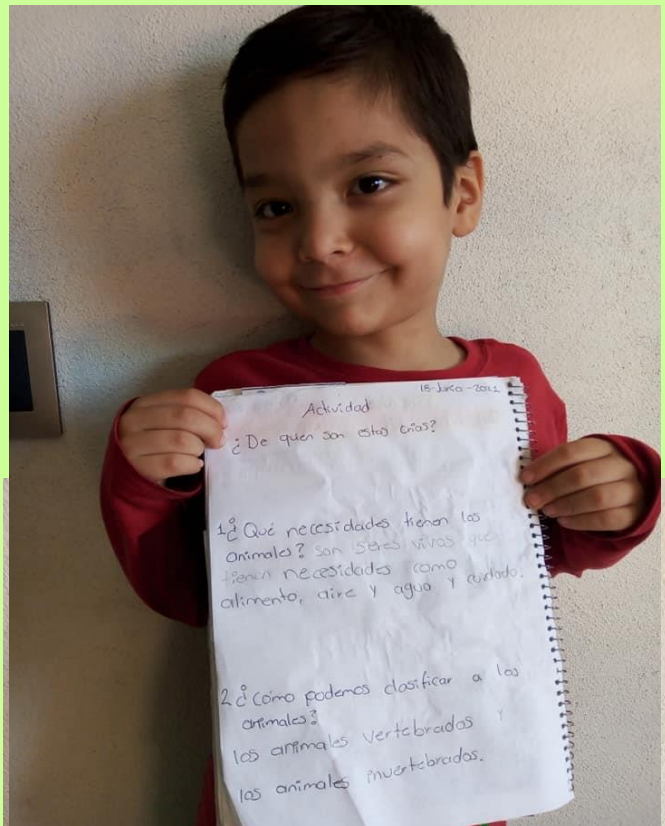 18-Junio-2021
Actividad
¿De quen son estas crias?
1° ¿Qué necesidades tienen los
animales? son seres vivos que
tienen necesidades como
alimento, aire y agua y cuidado.
2° ¿como podemos clasificar a los
animales?
los animales vertebrados y
los animales invertebrados.